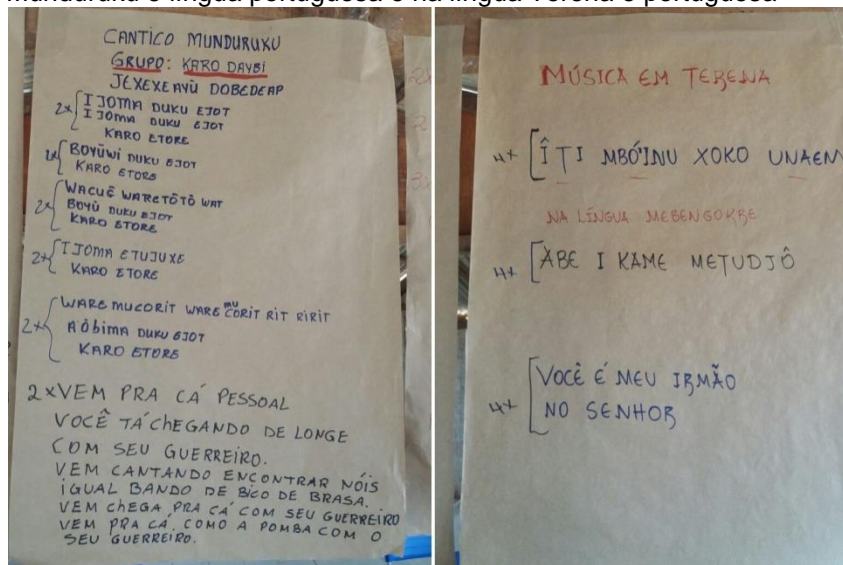 Munduruku e língua portuguesa e na língua Terena e portuguesa
CANTICO MUNDURUXU
GRUPO: KARO DAYBI
JEXEXE AYÙ DOBEDEAP
2x IJOMA DUKU EJOT
IJOMA DUKU EJOT
KARO ETORE
2x BOYŨWI DUKU EJOT
KARO ETORE
2x WACUẼ WARETÕTÕ WAT
BOYÙ DUKU EJOT
KARO ETORE
2x IJOMA ETUJUXE
KARO ETORE
2x WARE MUCORIT WARE MUCORIT RIT RIRIT
AÕBIMA DUKU EJOT
KARO ETORE
2x VEM PRA CÁ PESSOAL
VOCÊ TÁ CHEGANDO DE LONGE
COM SEU GUERREIRO.
VEM CANTANDO ENCONTRAR NÓIS
IGUAL BANDO DE BICO DE BRASA.
VEM CHEGA PRA CÁ COM SEU GUERREIRO
VEM PRA CÁ COMO A POMBA COM O
SEU GUERREIRO.
MÚSICA EM TERENA
4x ÎTI MBÓ'INU XOKO UNAEM
NA LÍNGUA MEBENGOKRE
4x ÀBE I KAME METUDJÔ
4x VOCÊ É MEU IRMÃO
NO SENHOR